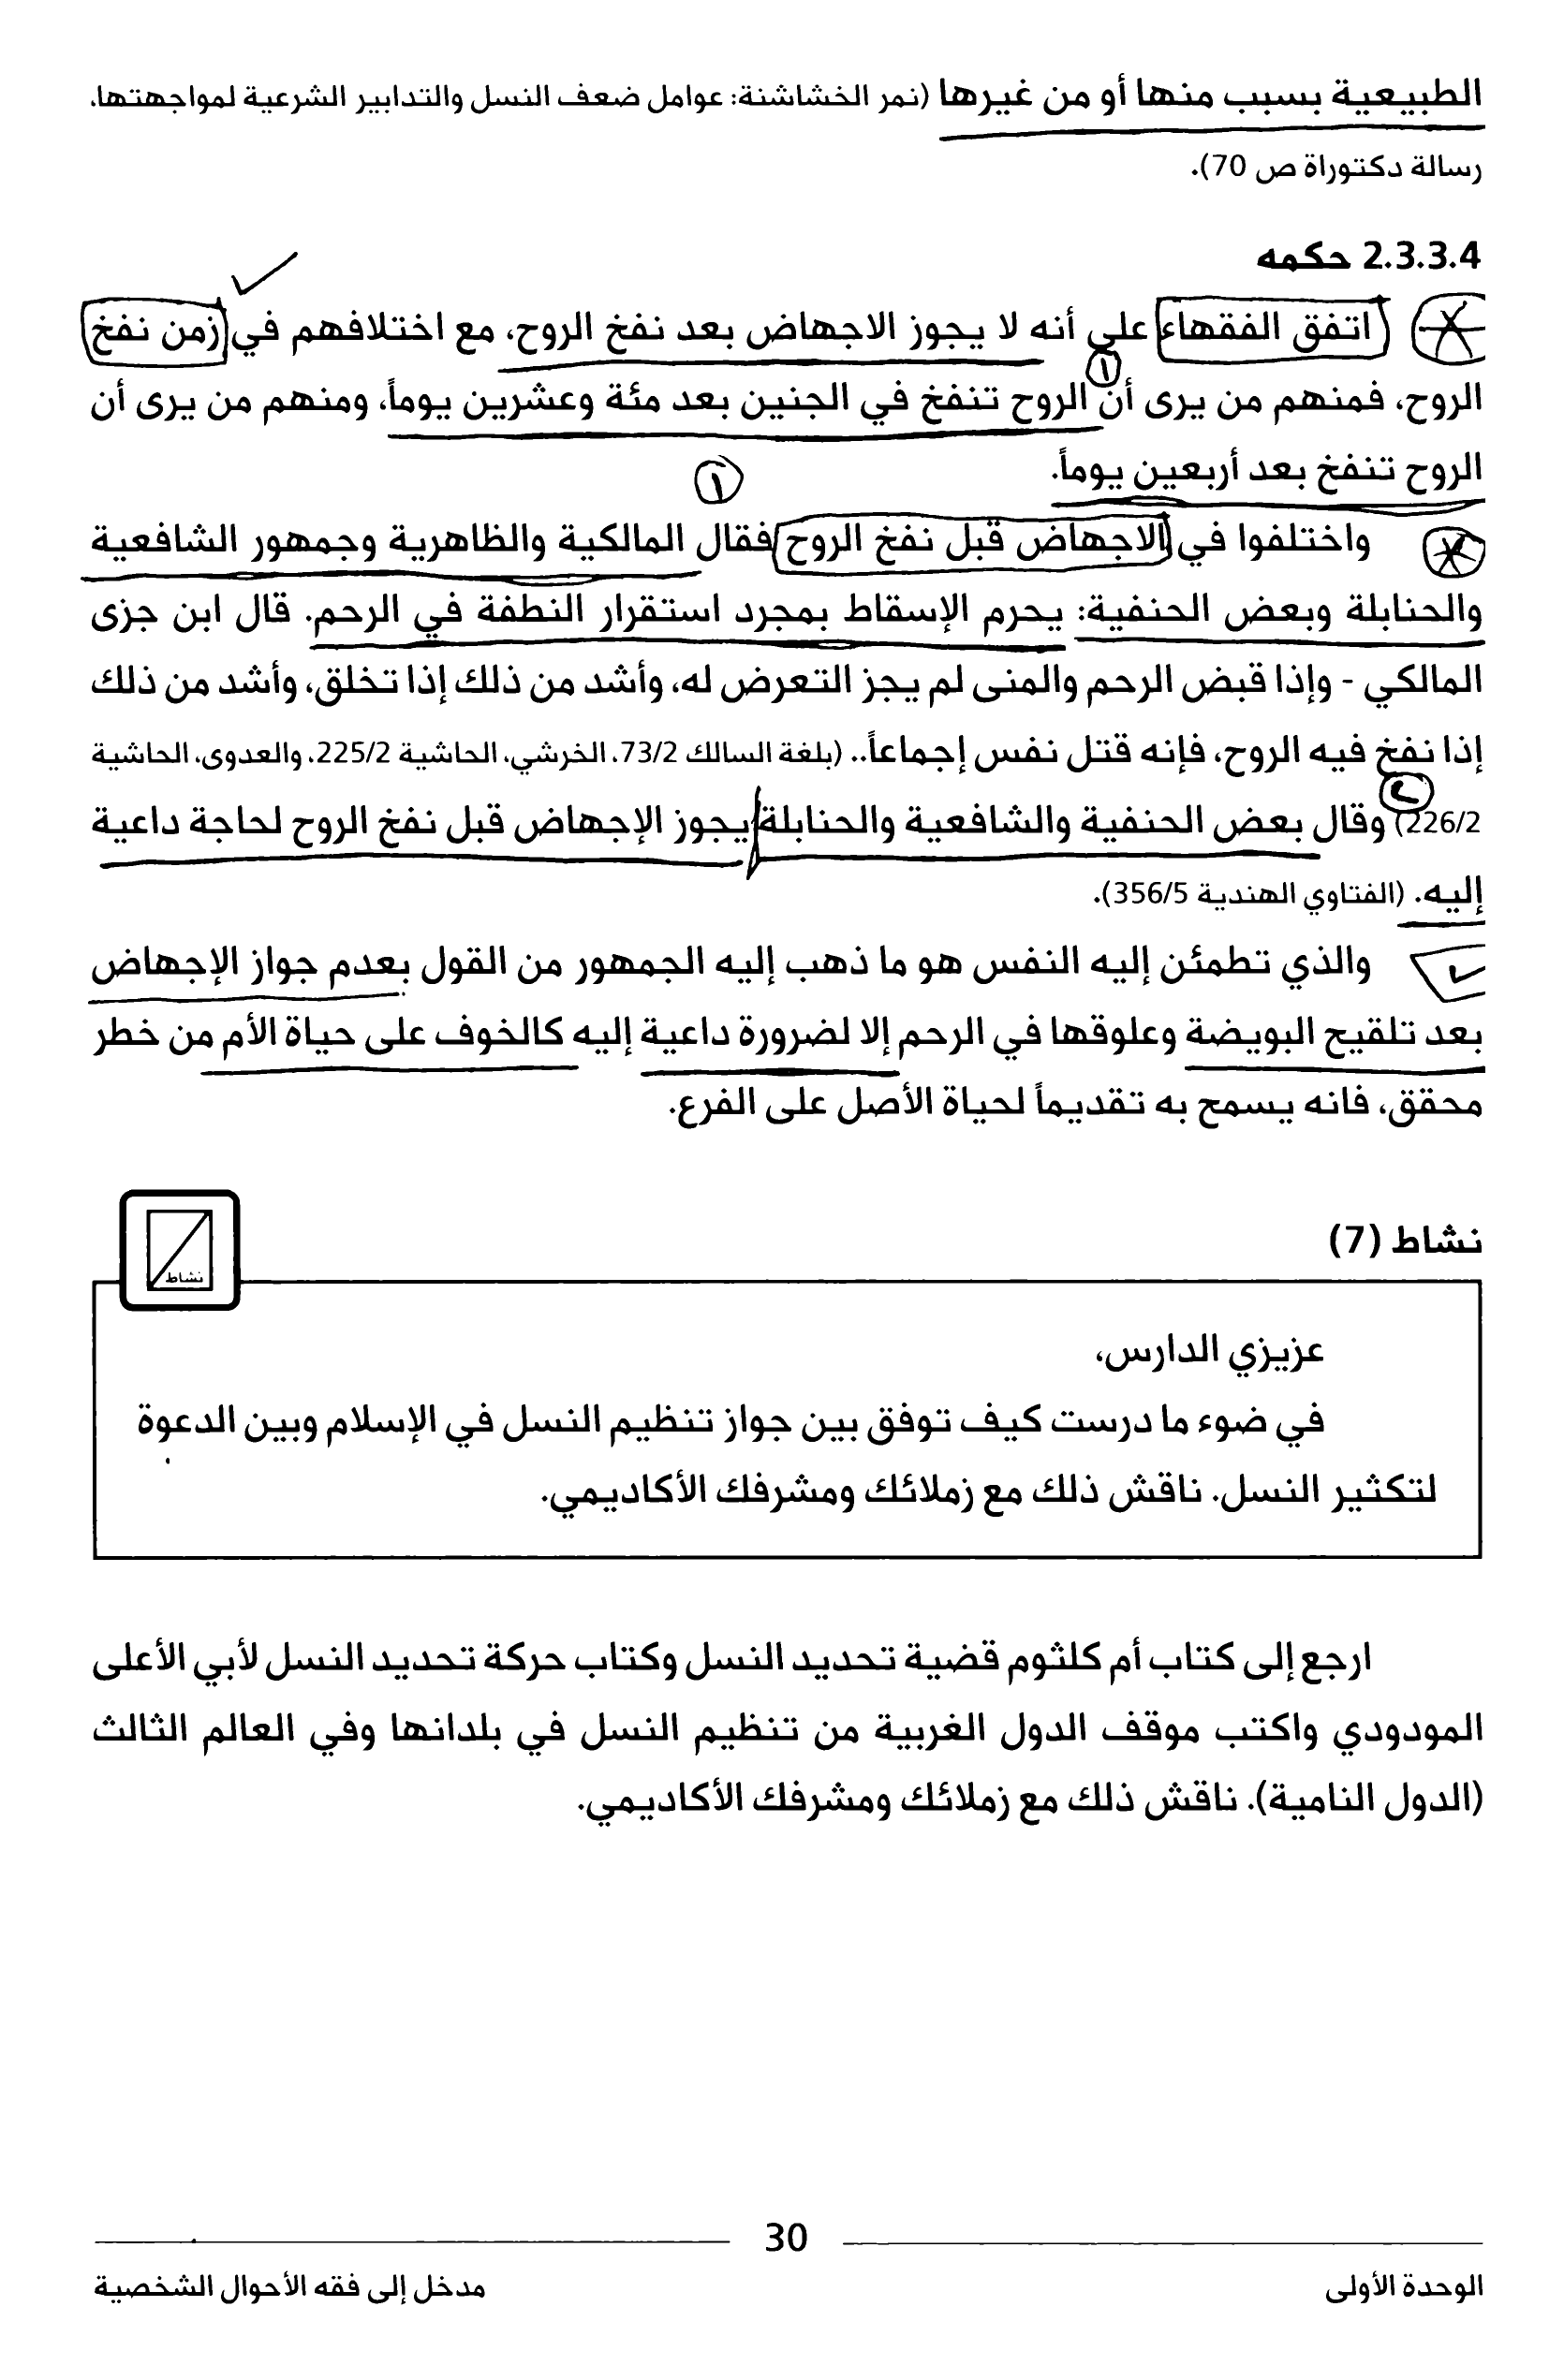 الطبيعية بسبب منها أو من غيرها (نمر الخشاشنة: عوامل ضعف النسل والتدابير الشرعية لمواجهتها،
رسالة دكتوراة ص 70).
2.3.3.4 حكمه
اتفق الفقهاء على أنه لا يجوز الاجهاض بعد نفخ الروح، مع اختلافهم في زمن نفخ
١
الروح، فمنهم من يرى أن الروح تنفخ في الجنين بعد مئة وعشرين يوماً، ومنهم من يرى أن
الروح تنفخ بعد أربعين يوماً.
١
واختلفوا في الاجهاض قبل نفخ الروح فقال المالكية والظاهرية وجمهور الشافعية
والحنابلة وبعض الحنفية: يحرم الإسقاط بمجرد استقرار النطفة في الرحم. قال ابن جزى
المالكي - وإذا قبض الرحم والمنى لم يجز التعرض له، وأشد من ذلك إذا تخلق، وأشد من ذلك
إذا نفخ فيه الروح، فإنه قتل نفس إجماعاً.. (بلغة السالك 73/2، الخرشي، الحاشية 225/2، والعدوى، الحاشية
226/2) وقال بعض الحنفية والشافعية والحنابلة يجوز الإجهاض قبل نفخ الروح لحاجة داعية
إليه. (الفتاوي الهندية 356/5).
والذي تطمئن إليه النفس هو ما ذهب إليه الجمهور من القول بعدم جواز الإجهاض
بعد تلقيح البويضة وعلوقها في الرحم إلا لضرورة داعية إليه كالخوف على حياة الأم من خطر
محقق، فانه يسمح به تقديماً لحياة الأصل على الفرع.
نشاط (7)
نشاط
عزيزي الدارس،
في ضوء ما درست كيف توفق بين جواز تنظيم النسل في الإسلام وبين الدعوة
لتكثير النسل. ناقش ذلك مع زملائك ومشرفك الأكاديمي.
ارجع إلى كتاب أم كلثوم قضية تحديد النسل وكتاب حركة تحديد النسل لأبي الأعلى
المودودي واكتب موقف الدول الغربية من تنظيم النسل في بلدانها وفي العالم الثالث
(الدول النامية). ناقش ذلك مع زملائك ومشرفك الأكاديمي.
30
الوحدة الأولى
مدخل إلى فقه الأحوال الشخصية